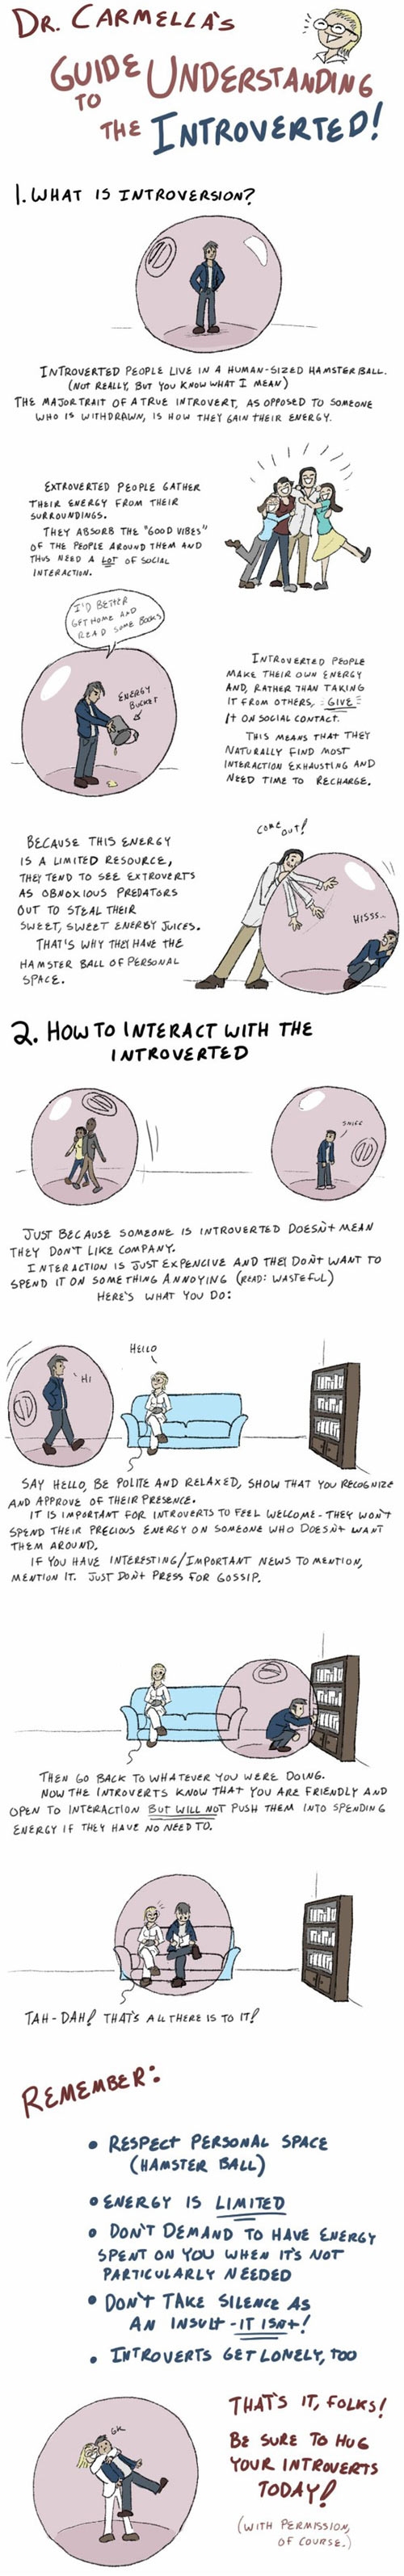 DR. CARMELLA'S
GUIDE
TO
UNDERSTANDING
THE INTROVERTED!
1. WHAT IS INTROVERSION?
INTROVERTED PEOPLE LIVE IN A HUMAN-SIZED HAMSTER BALL.
(NOT REALLY, BUT YOU KNOW WHAT I MEAN)
THE MAJOR TRAIT OF A TRUE INTROVERT, AS OPPOSED TO SOMEONE
WHO IS WITHDRAWN, IS HOW THEY GAIN THEIR ENERGY.
EXTROVERTED PEOPLE GATHER
THEIR ENERGY FROM THEIR
SURROUNDINGS.
THEY ABSORB THE "GOOD VIBES"
OF THE PEOPLE AROUND THEM AND
THUS NEED A LOT OF SOCIAL
INTERACTION.
I'D BETTER
GET HOME AND
READ SOME BOOKS
ENERGY
BUCKET
INTROVERTED PEOPLE
MAKE THEIR OWN ENERGY
AND, RATHER THAN TAKING
IT FROM OTHERS, GIVE
IT ON SOCIAL CONTACT.
THIS MEANS THAT THEY
NATURALLY FIND MOST
INTERACTION EXHAUSTING AND
NEED TIME TO RECHARGE.
COME OUT!
BECAUSE THIS ENERGY
IS A LIMITED RESOURCE,
THEY TEND TO SEE EXTROVERTS
AS OBNOXIOUS PREDATORS
OUT TO STEAL THEIR
SWEET, SWEET ENERGY JUICES.
THAT'S WHY THEY HAVE THE
HAMSTER BALL OF PERSONAL
SPACE.
HISSS..
2. HOW TO INTERACT WITH THE
INTROVERTED
SNIFF
JUST BECAUSE SOMEONE IS INTROVERTED DOESN'T MEAN
THEY DON'T LIKE COMPANY.
INTERACTION IS JUST EXPENCIVE AND THEY DON'T WANT TO
SPEND IT ON SOMETHING ANNOYING (READ: WASTEFUL)
HERE'S WHAT YOU DO:
HELLO
HI
SAY HELLO, BE POLITE AND RELAXED, SHOW THAT YOU RECOGNIZE
AND APPROVE OF THEIR PRESENCE.
IT IS IMPORTANT FOR INTROVERTS TO FEEL WELCOME - THEY WON'T
SPEND THEIR PRECIOUS ENERGY ON SOMEONE WHO DOESN'T WANT
THEM AROUND.
IF YOU HAVE INTERESTING/IMPORTANT NEWS TO MENTION,
MENTION IT. JUST DON'T PRESS FOR GOSSIP.
THEN GO BACK TO WHATEVER YOU WERE DOING.
NOW THE INTROVERTS KNOW THAT YOU ARE FRIENDLY AND
OPEN TO INTERACTION BUT WILL NOT PUSH THEM INTO SPENDING
ENERGY IF THEY HAVE NO NEED TO.
TAH-DAH! THAT'S ALL THERE IS TO IT!
REMEMBER:
• RESPECT PERSONAL SPACE
(HAMSTER BALL)
• ENERGY IS LIMITED
• DON'T DEMAND TO HAVE ENERGY
SPENT ON YOU WHEN IT'S NOT
PARTICULARLY NEEDED
• DON'T TAKE SILENCE AS
AN INSULT - IT ISN'T!
• INTROVERTS GET LONELY, TOO
GK
THAT'S IT, FOLKS!
BE SURE TO HUG
YOUR INTROVERTS
TODAY!
(WITH PERMISSION,
OF COURSE.)